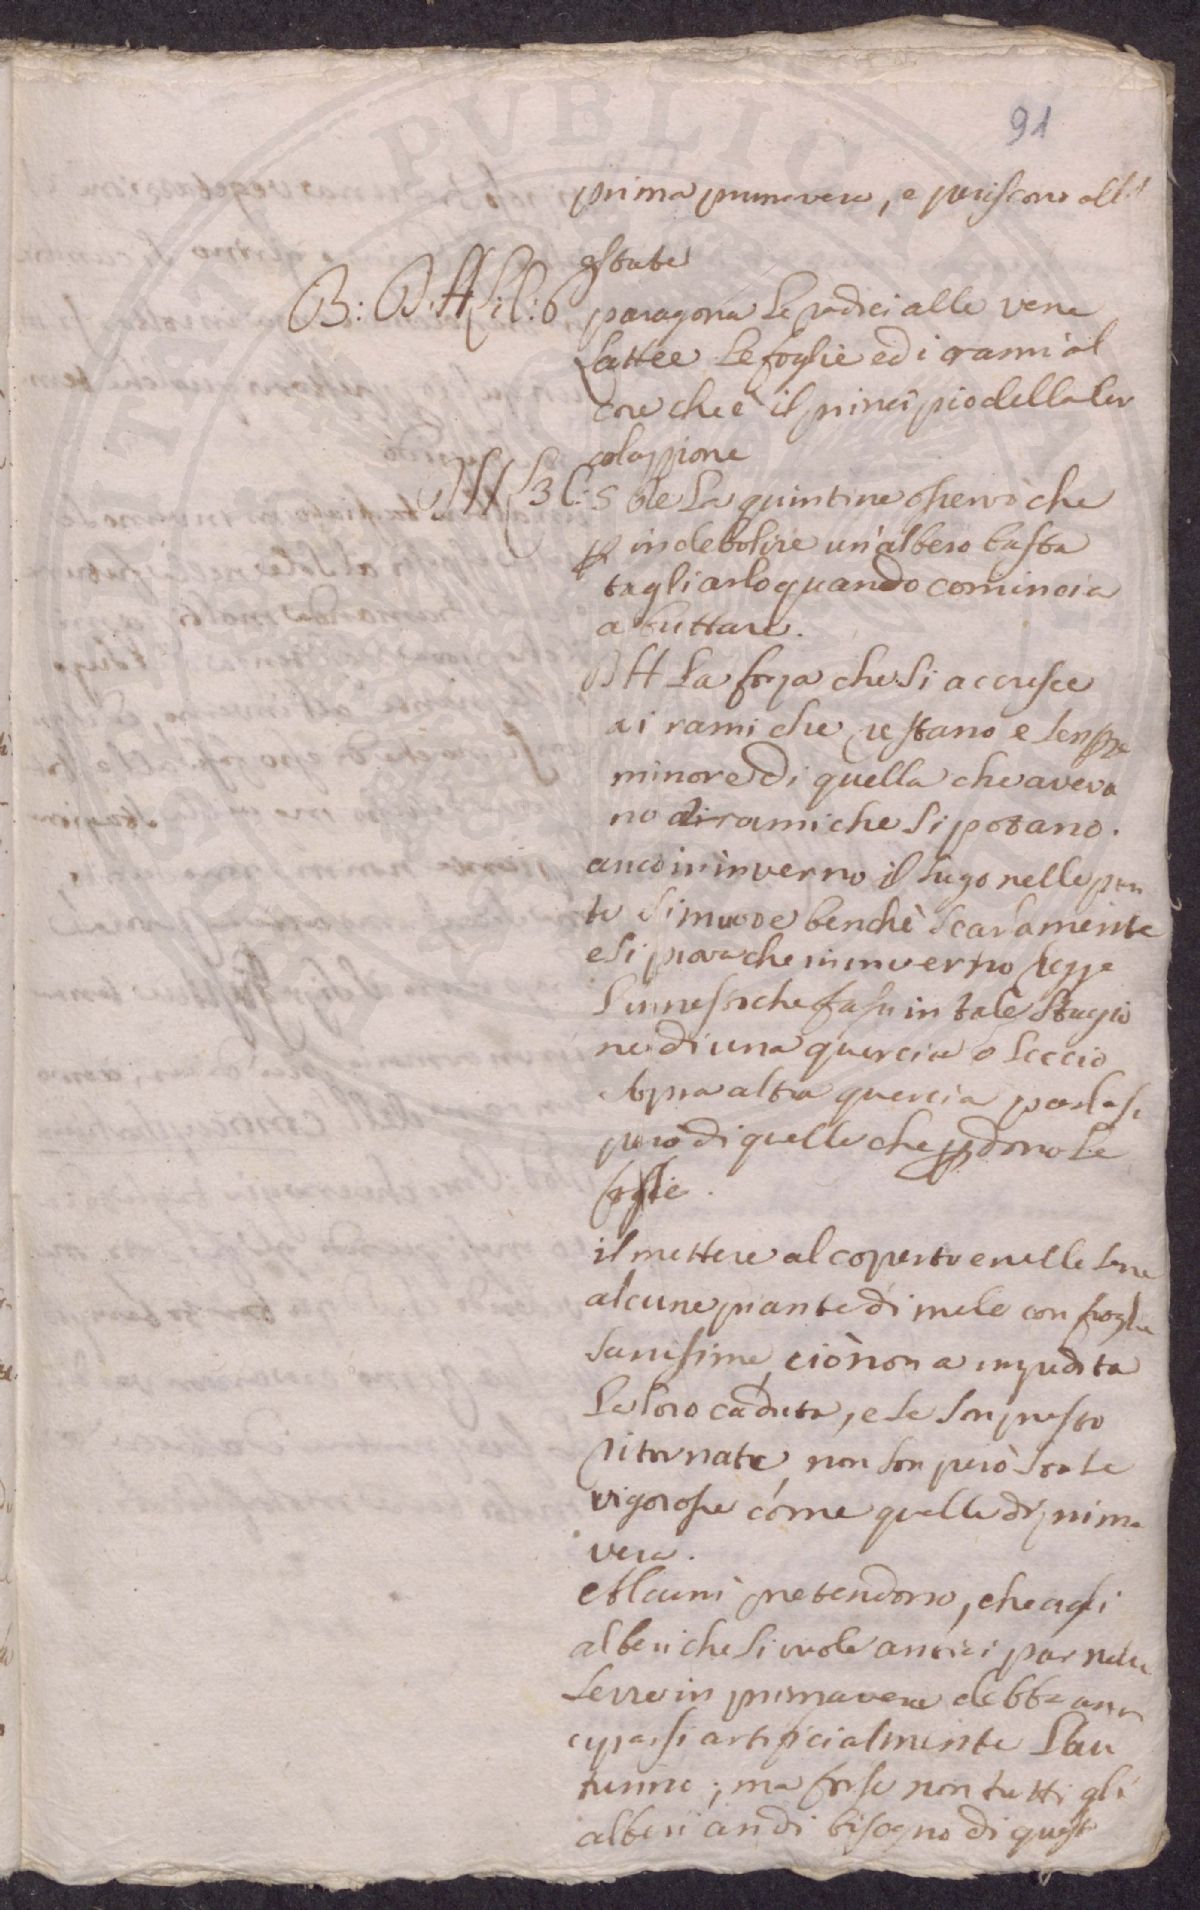 91
prima primavera, e periscono all'
estate
paragona le radici alle vene
lattee le foglie ed i rami al
core che è il principio della cir
colazzione
De La quintine osservò che
p indebolire un'albero basta
tagliarlo quando comincia
a buttare.
DH La forza che si accresce
ai rami che restano e sempre
minore di quella che aveva
no i rami che si potano.
anco in inverno il sugo nelle pian
te si muove benchè scarsamente
e si prova che in inverno regge
l'innesto che fassi in tale stagio
ne di una quercia o leccio
sopra altra quercia
però di quelle che pdono le
foglie.
il mettere al coperto e nelle serre
alcune piante di mele con foglie
sanissime, ciò non a impedita
la loro caduta, e se son presto
ritornate, non son però state
vigorose come quelle di prima
vera.
Alcuni pretendono, che agli
alberi che si vole anticipar nelle
serre in primavera debba anti
ciparsi artificialmente l'au
tunno; ma forse non tutti gli
alberi an di bisogno di questo